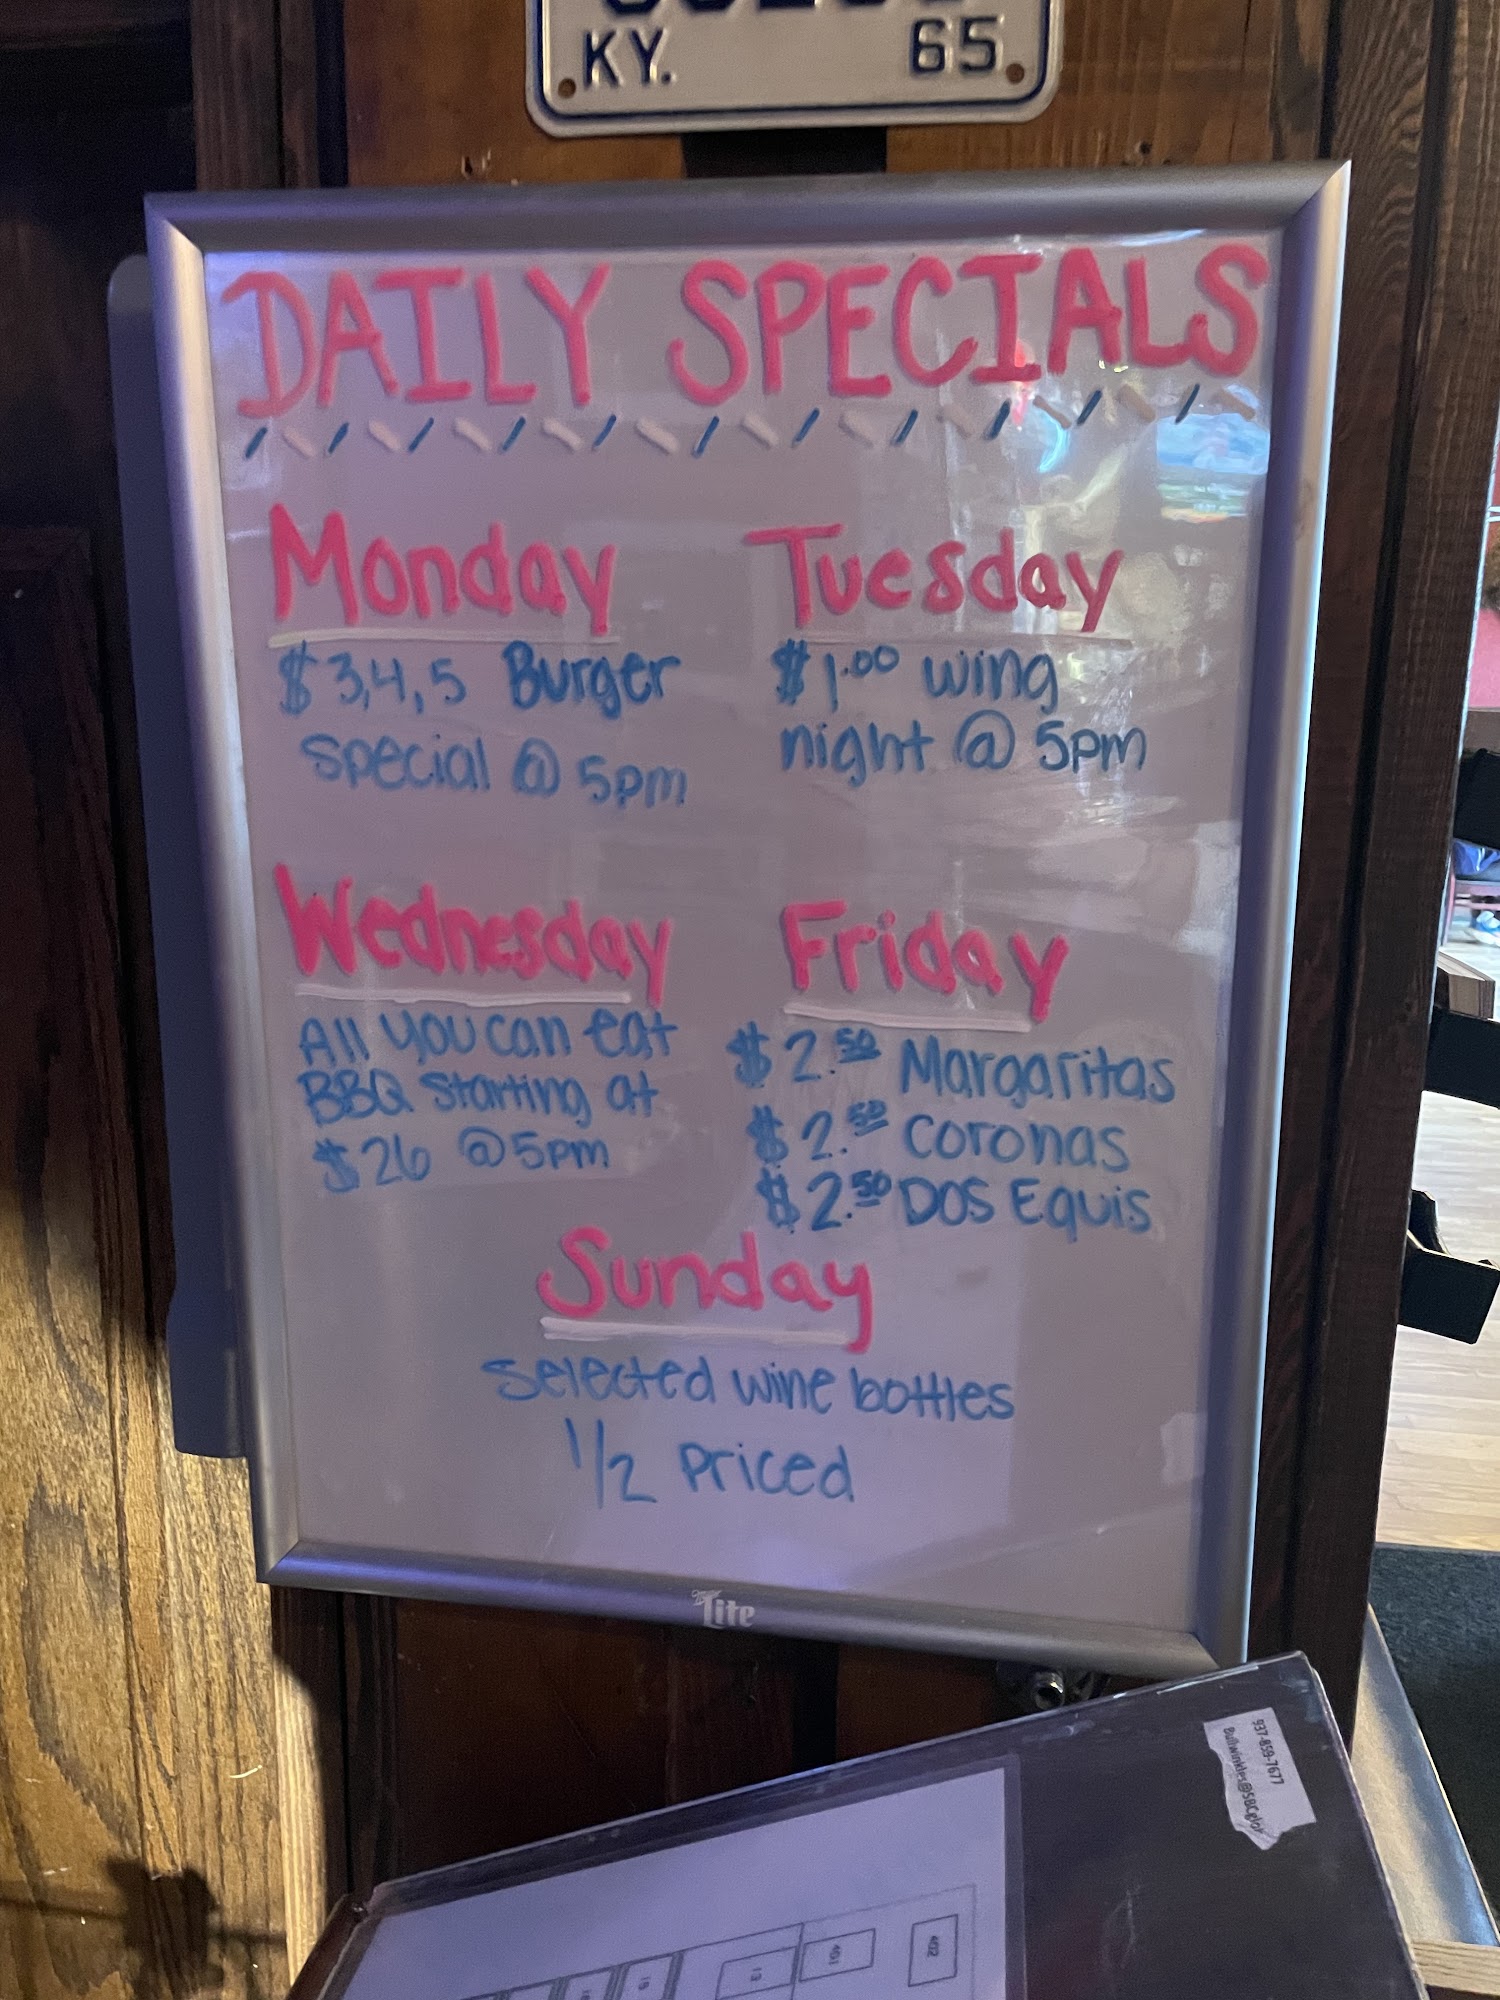 KY. 65
DAILY SPECIALS
Monday
$3,4,5 Burger
special @ 5pm
Tuesday
$1.00 wing
night @ 5pm
Wednesday
All you can eat
BBQ starting at
$26 @ 5pm
Friday
$2.50 Margaritas
$2.50 Coronas
$2.50 DOS Equis
Sunday
Selected wine bottles
1/2 Priced
Miller
Lite
937-859-7677
402
401
13